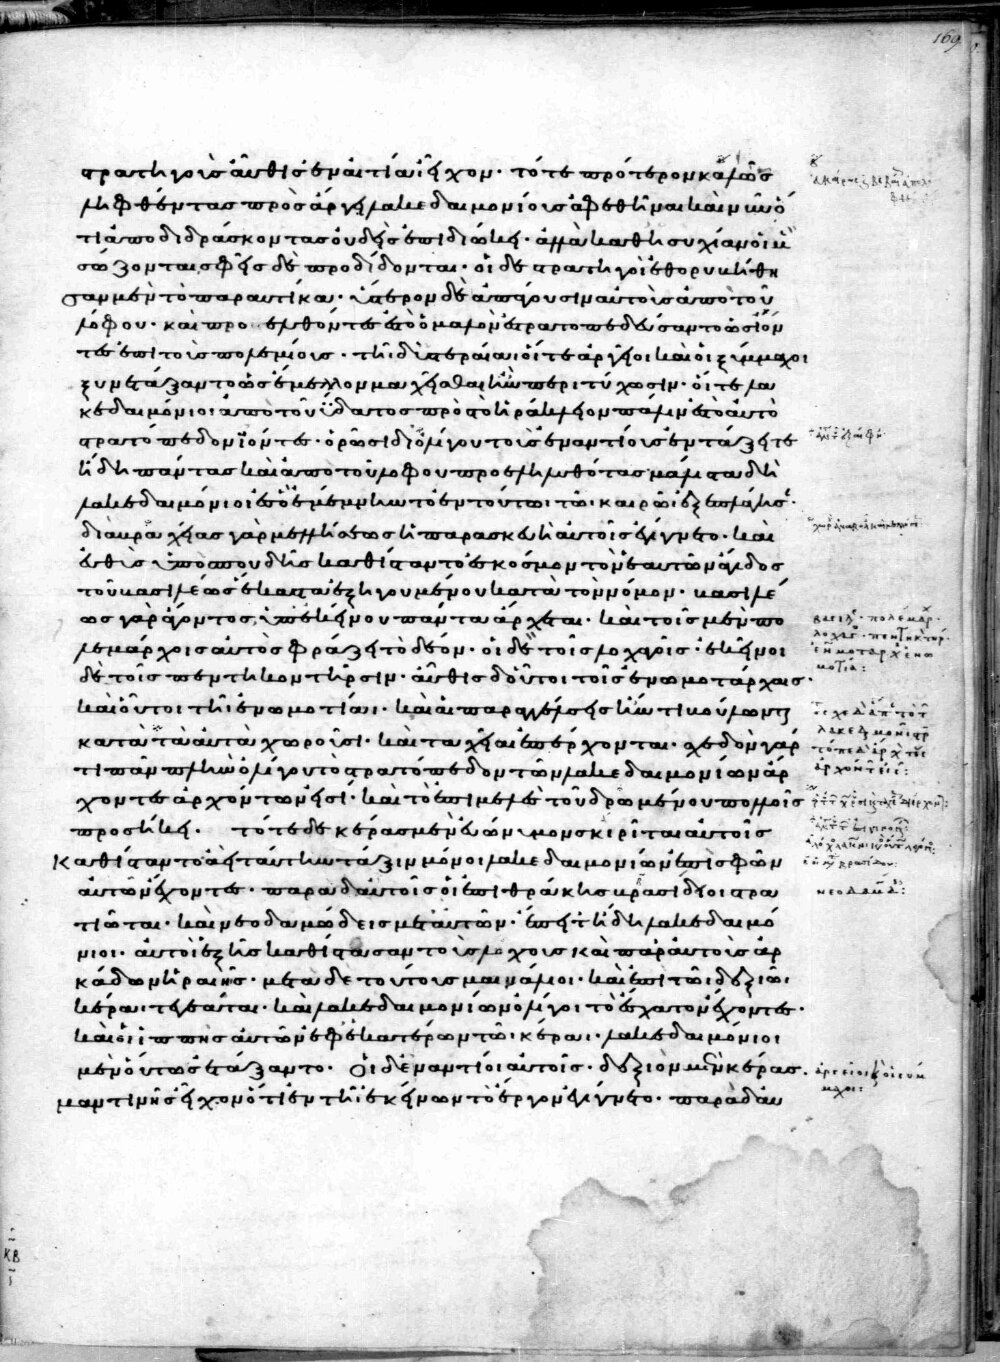 στρατηγοὺς αὖθις ἐν αἰτίαι εἶχον· τό τε πρότερον καλῶς
ληφθέντας πρὸς ἄργει λακεδαιμονίους ἀφεθῆναι καὶ νῦν ὅ
τι ἀποδιδράσκοντας οὐδεὶς ἐπιδιώκει· ἀλλὰ καθ' ἡσυχίαν οἱ μὲν
σώζονται σφεῖς δὲ προδίδονται· οἱ δὲ στρατηγοὶ ἐθορυβήθη
σαν μὲν τὸ παραυτίκα· ὕστερον δὲ ἀπάγουσιν αὐτοὺς ἀπὸ τοῦ
λόφου· καὶ προελθόντες ἐς τὸ ὁμαλὸν ἐστρατοπεδεύσαντο ὡς ἰόν
τες ἐπὶ τοὺς πολεμίους· τῆι δ' ὑστεραίαι οἵ τε ἀργεῖοι καὶ οἱ ξύμμαχοι
ξυνετάξαντο ὡς ἔμελλον μαχεῖσθαι ἢν περιτύχωσιν· οἵ τε λα
κεδαιμόνιοι ἀπὸ τοῦ ὕδατος πρὸς τὸ ἡράκλειον πάλιν ἐς τὸ αὐτὸ
στρατόπεδον ἰόντες· ὁρῶσι δι' ὀλίγου τοὺς ἐναντίους ἐν τάξει τε
ἤδη πάντας καὶ ἀπὸ τοῦ λόφου προεληλυθότας μάλιστα δὴ
λακεδαιμόνιοι ἐς ὃ ἐμέμνηντο ἐν τούτωι τῶι καιρῶι ἐξεπλάγησαν·
διὰ βραχείας γὰρ μελλήσεως ἡ παρασκευὴ αὐτοῖς ἐγίγνετο· καὶ
εὐθὺς ὑπὸ σπουδῆς καθίσταντο ἐς κόσμον τὸν ἑαυτῶν ἄγιδος
τοῦ βασιλέως ἕκαστα ἐξηγουμένου κατὰ τὸν νόμον· βασιλέ
ως γὰρ ἄγοντος, ὑπ' ἐκείνου πάντα ἄρχεται· καὶ τοῖς μὲν πο
λεμάρχοις αὐτὸς φράζει τὸ δέον· οἱ δὲ τοῖς λοχαγοῖς· ἐκεῖνοι
δὲ τοῖς πεντηκοντῆρσιν· αὖθις δ' οὗτοι τοῖς ἐνωμοτάρχαις·
καὶ οὗτοι τῆι ἐνωμοτίαι· καὶ αἱ παραγγέλσεις ἤν τι βούλωνται
κατὰ τὰ αὐτὰ χωροῦσι· καὶ ταχεῖαι ἐπέρχονται· σχεδὸν γάρ
τι πᾶν πλὴν ὀλίγου τὸ στρατόπεδον τῶν λακεδαιμονίων ἄρ
χοντες ἀρχόντων εἰσί· καὶ τὸ ἐπιμελὲς τοῦ δρωμένου πολλοῖς
προσήκει· τότε δὲ κέρας μὲν εὐώνυμον σκιρῖται αὐτοῖς
καθίσταντο ἀεὶ ταύτην τὴν τάξιν μόνοι λακεδαιμονίων ἐπὶ σφῶν
αὐτῶν ἔχοντες· παρὰ δ' αὐτοῖς οἱ ἐπὶ θράικης βρασίδειοι στρα
τιῶται· καὶ νεοδαμώδεις μετ' αὐτῶν· ἔπειτ' ἤδη λακεδαιμό
νιοι· αὐτοὶ ἑξῆς καθίστασαν τοὺς λόχους καὶ παρ' αὐτοὺς ἀρ
κάδων ἡραιῆς· μετὰ δὲ τούτους μαινάλιοι· καὶ ἐπὶ τῶι δεξιῶι
κέραι τεγεᾶται· καὶ λακεδαιμονίων ὀλίγοι τὸ ἔσχατον ἔχοντες·
καὶ οἱ ἱππῆς αὐτῶν ἐφ' ἑκατέρωι τῶι κέραι· λακεδαιμόνιοι
μὲν οὕτως ἐτάξαντο· οἱ δ' ἐναντίοι αὐτοῖς· δεξιὸν μὲν κέρας
μαντινῆς εἶχον ὅτι ἐν τῆι ἐκείνων τὸ ἔργον ἐγίγνετο· παρὰ δ' αὐ